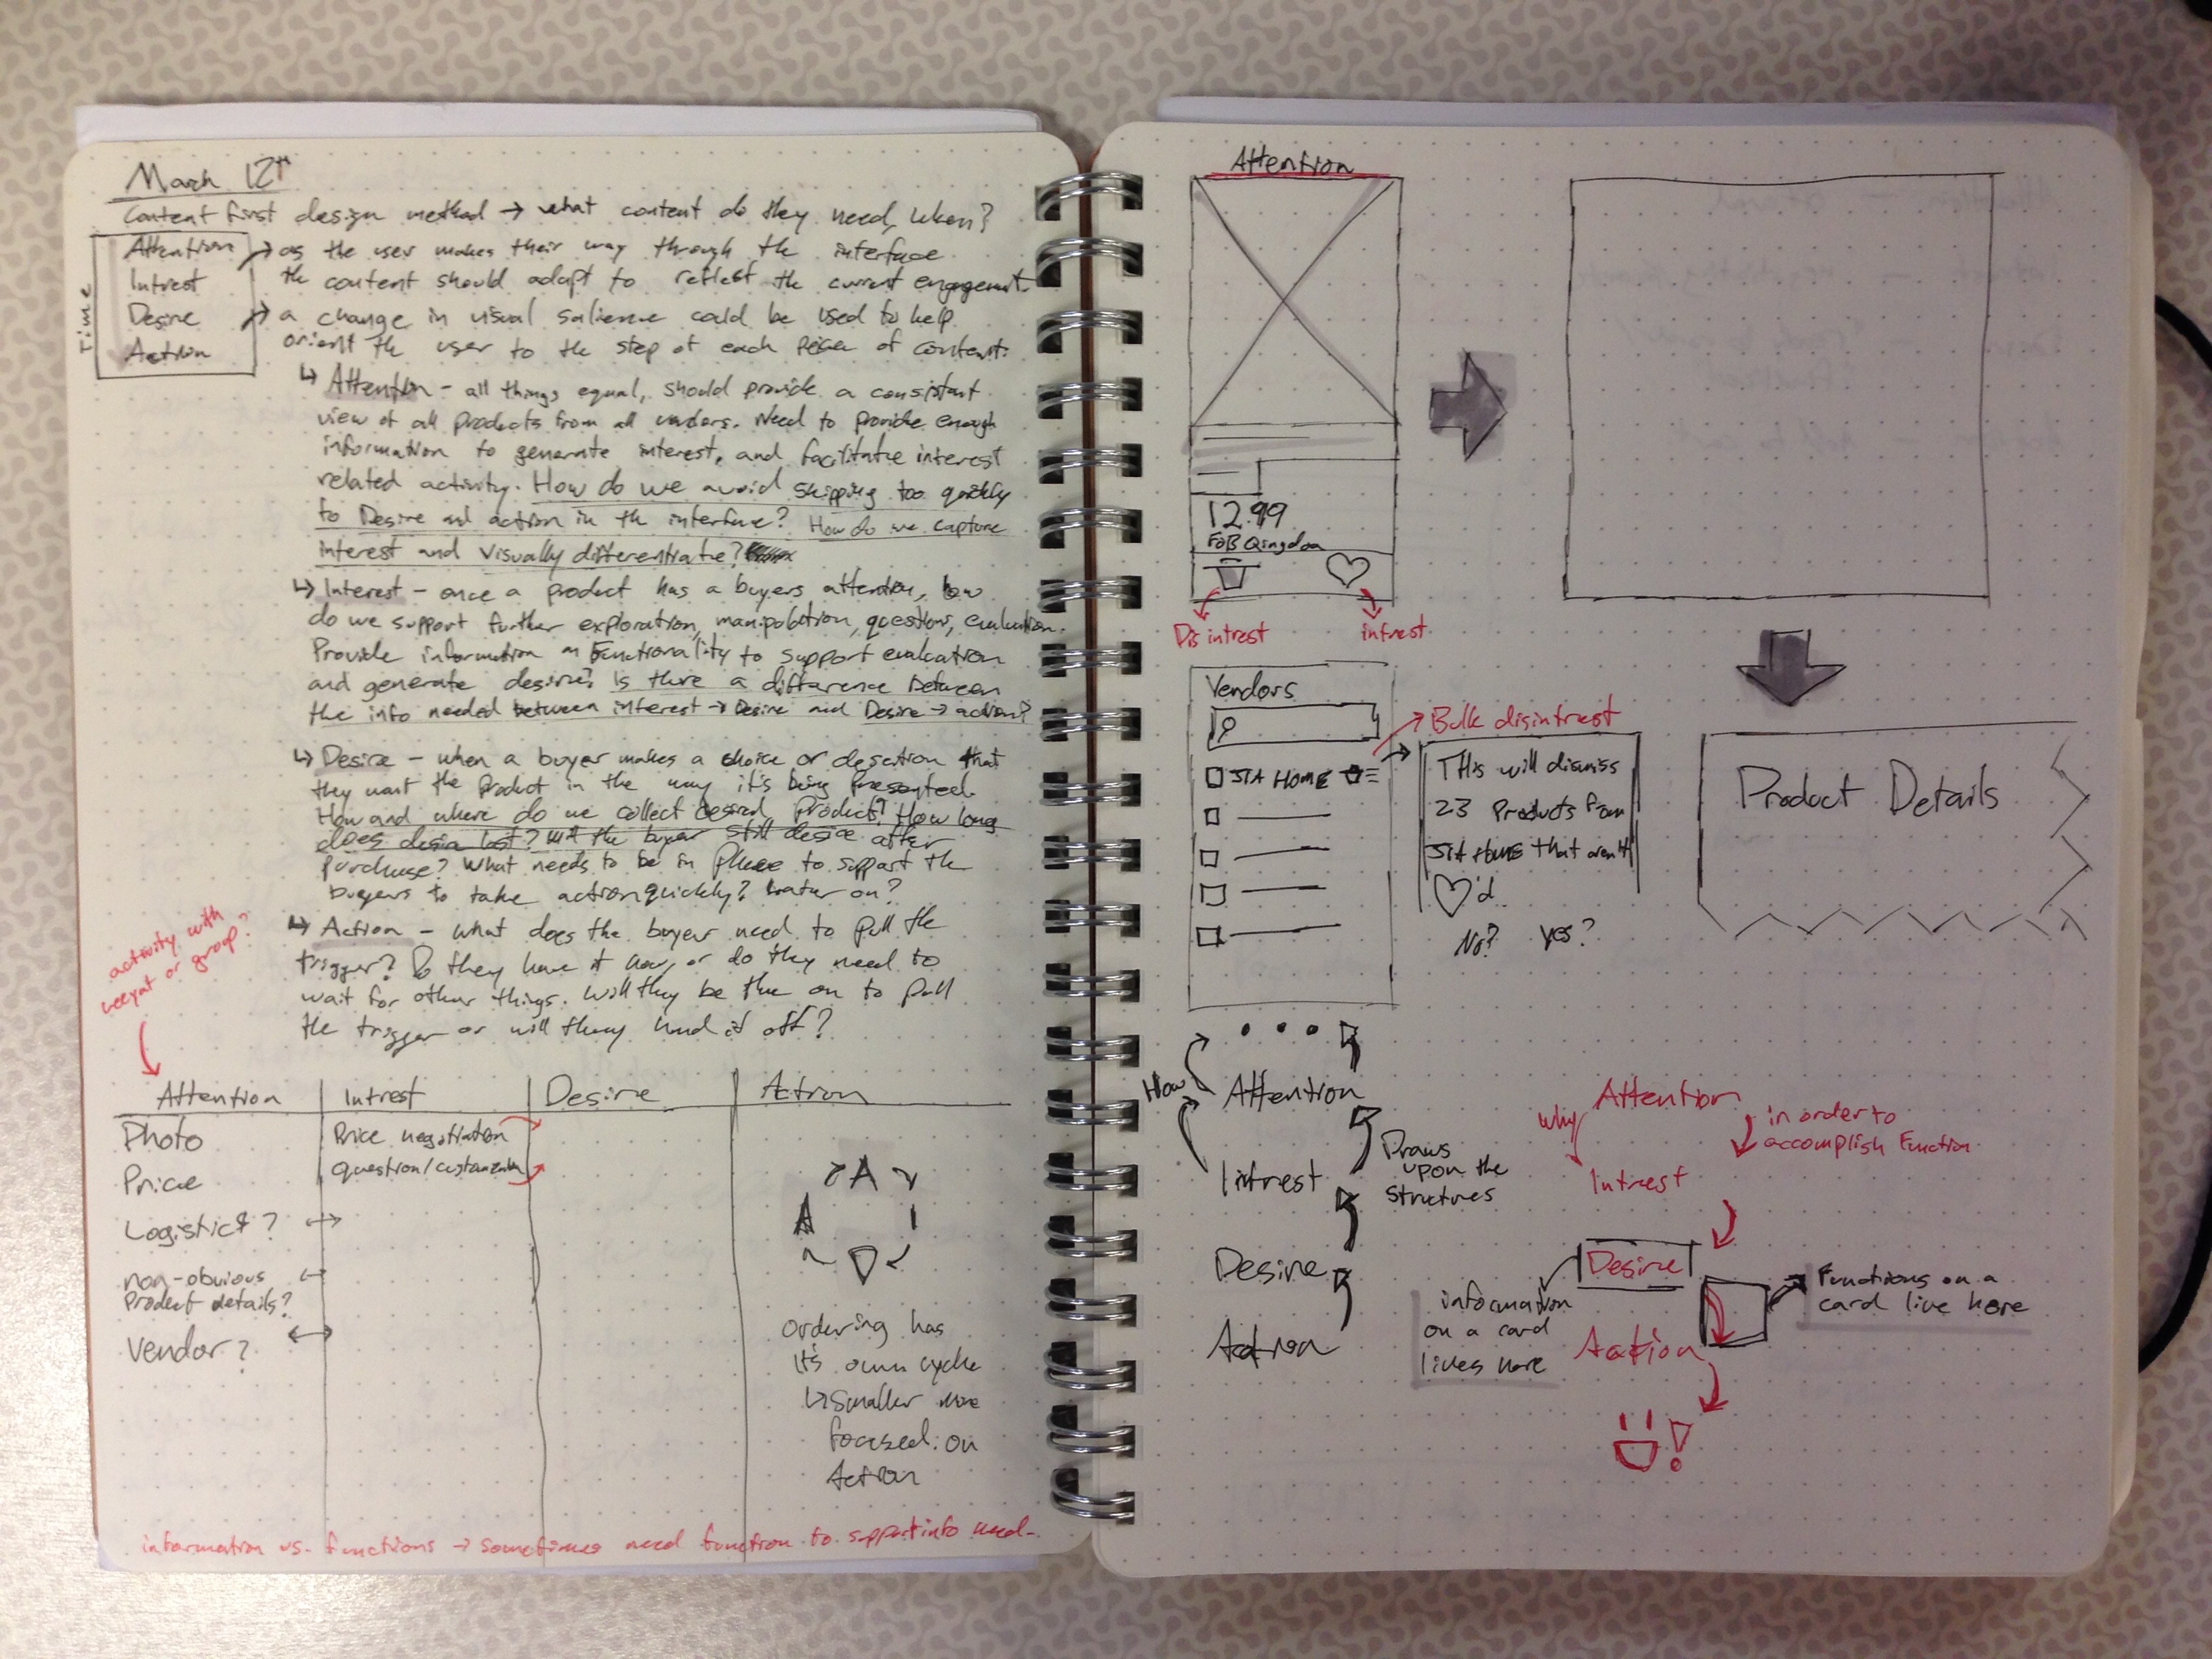 March 12th
Content first design method → what content do they need, when?
Time
Attention
Intrest
Desire
Action
→ as the user makes their way through the interface
the content should adapt to reflect the current engagement.
→ a change in visual salience could be used to help
orient the user to the step of each peice of content.
↳ Attention - all things equal, should provide a consistant
view of all products from all vendors. Need to provide enough
information to generate interest, and facilitate interest
related activity. How do we avoid skipping too quickly
to Desire and action in the interface? How do we capture
interest and visually differentiate?
↳ Interest - once a product has a buyers attention, how
do we support further exploration, manipulation, questions, evaluation.
Provide information or Functionality to support evaluation
and generate desire? Is there a difference between
the info needed between interest → Desire and Desire → action?
↳ Desire - when a buyer makes a choice or that
they want the Product in the way it's being presented.
How and where do we collect desired products? How long
does desire last? will the buyer still desire after
purchase? What needs to be in place to support the
buyers to take action quickly? on?
↳ Action - what does the buyer need to pull the
trigger? Do they have it now, or do they need to
wait for other things. Will they be the on to pull
the trigger or will they hand it off?
activity with
or group?
Attention
Intrest
Desire
Action
Photo
Price negotiation
Price
question/
Logistics?
non-obvious
Product details?
Vendor?
A
I
D
A
ordering has
it's own cycle
↳ smaller more
focused on
Action
information vs. functions → sometimes need function to support info need.
Attention
12.99
FOB Qingdao
Disintrest
intrest
Vendors
STA HOME
Bulk disintrest
This will dismiss
23 Products from
STA HOME that aren't
♡'d.
No? yes?
Product Details
How
Attention
Intrest
Desire
Action
Draws
upon the
structures
why
Attention
in order to
accomplish Function
Intrest
Desire
Action
information
on a card
lives here
Functions on a
card live here